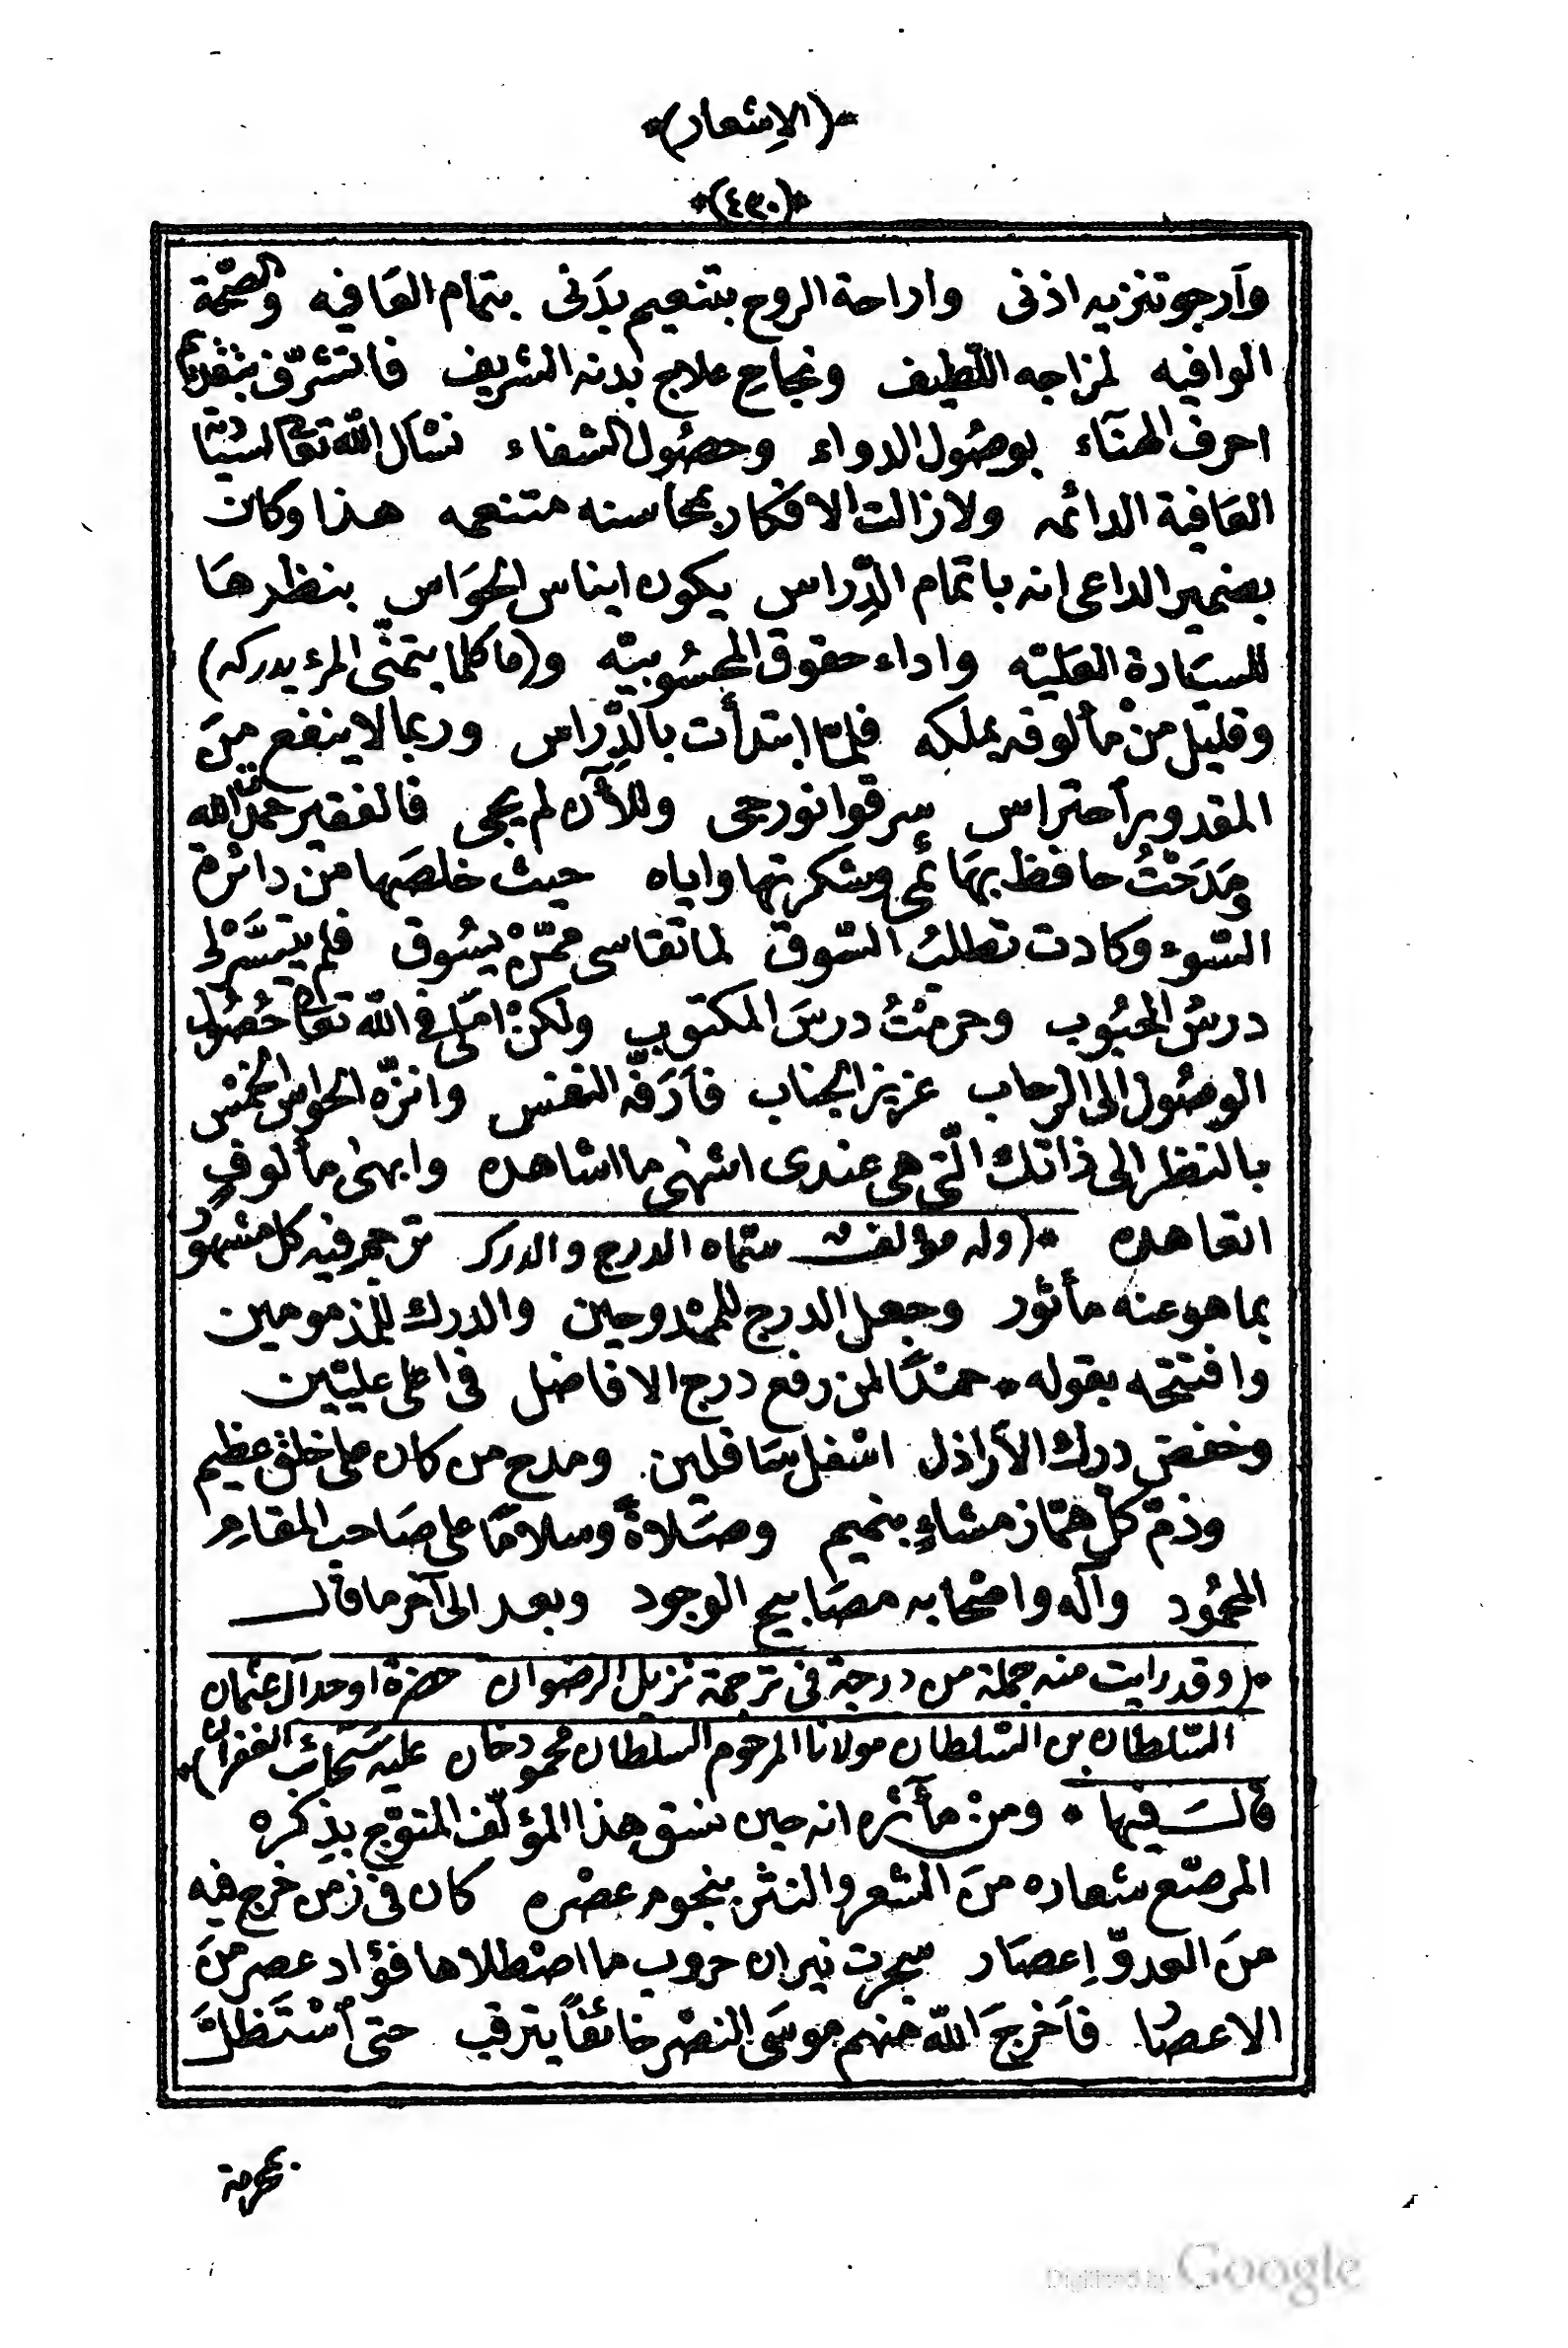 *(الاِشعار)*
*(٤٣٠)*
وآرجو تنزيه اذنى واراحة الروح بتنعيم بدَنى بتمام العَافيه والصّحّة
الوافيه لمزاجه اللّطيف ونجاحِ علاج بدنه الشريف فاتشرّف بتقديم
احرف الهنآء بوصُول الدواء وحصُول الشفاء نسْأل الله تعالى لسيادته
العَافية الدائمه ولازالت الافكار بمحاسنه متنعمه هذا وكان
بضمير الداعى انه باتمام الدِّراس يكون ايناس الحوَاس بنظرهَا
للسيَادة العَليّه واداء حقوق المحسُوبيّه و(ما كلما يتمنّى المرء يدركه)
وقليل منْ مألوفه يملكه فلمّا ابتدأت بالدِّراس وربما لا ينفع منَ
المقدور احتراس سرقوا نورجى وللآن لم يجى فالفقير حمدْت الله
ومَدَحْتُ حافظ بهَائمى وشكرتها واياه حيث خلصَها من دائرة
السّوء وكادت تطلبُ السّوق لما تقاسى ممّنْ يسُوق فلم يتيسَّرْلى
درسُ الحبُوب وحرمْتُ درسَ المكتوب ولكنْ امَلى فى الله تعالى حُصُول
الوصُول الى الرحاب عزيز الجناب فآرَفّه النفس وانزّه الحواس الخمْس
بالنظر الى ذاتك الّتى هى عندى اشهٰى ما اشاهده وابهىٰ مألوفٍ
اتعاهده *(وله مؤلف سمّاه الدرج والدرك ترجم فيه كل مشهُور
بما هو عنه مأثور وجعل الدرج للممْدوحين والدرك للمذمومين
وافتتحه بقوله * حمدًا لمن رفع درج الافاضل فى اعلى علّيين
وخفض درك الأراذل اسْفل سَافلين ومدح من كان على خلق عظيم
وذمّ كلّ همّاز مشاءٍ بنميم وصَلاةً وسلامًا على صَاحب المقام
المحمُود وآله واصْحابه مصَابيح الوجود وبعد الى آخر ما قال
*(وقد رايت منه جملة من درجة فى ترجمة نزيل الرضوان حضرة اوحد آل عثمان
السّلطان بن السّلطان مولانا المرحوم السلطان محمود خان عليه سَحَائب الغفران)*
قالَ فيها * ومنْ مآثره انه حين نسق هذا المؤلّف المتوّج بذكره
المرصّع شعاره منَ الشعر والنثر بنجوم عصْره كان فى زمن خرج فيه
منَ العدوّ اِعصَار سجرت نيران حروب ما اصْطلاها فؤاد عصر منَ
الاعصَار فآخرجَ الله منهم موسَى النصْر خائفاً يترقب حتى اسْتَظلَّ
بحرمة
Digitized by Google